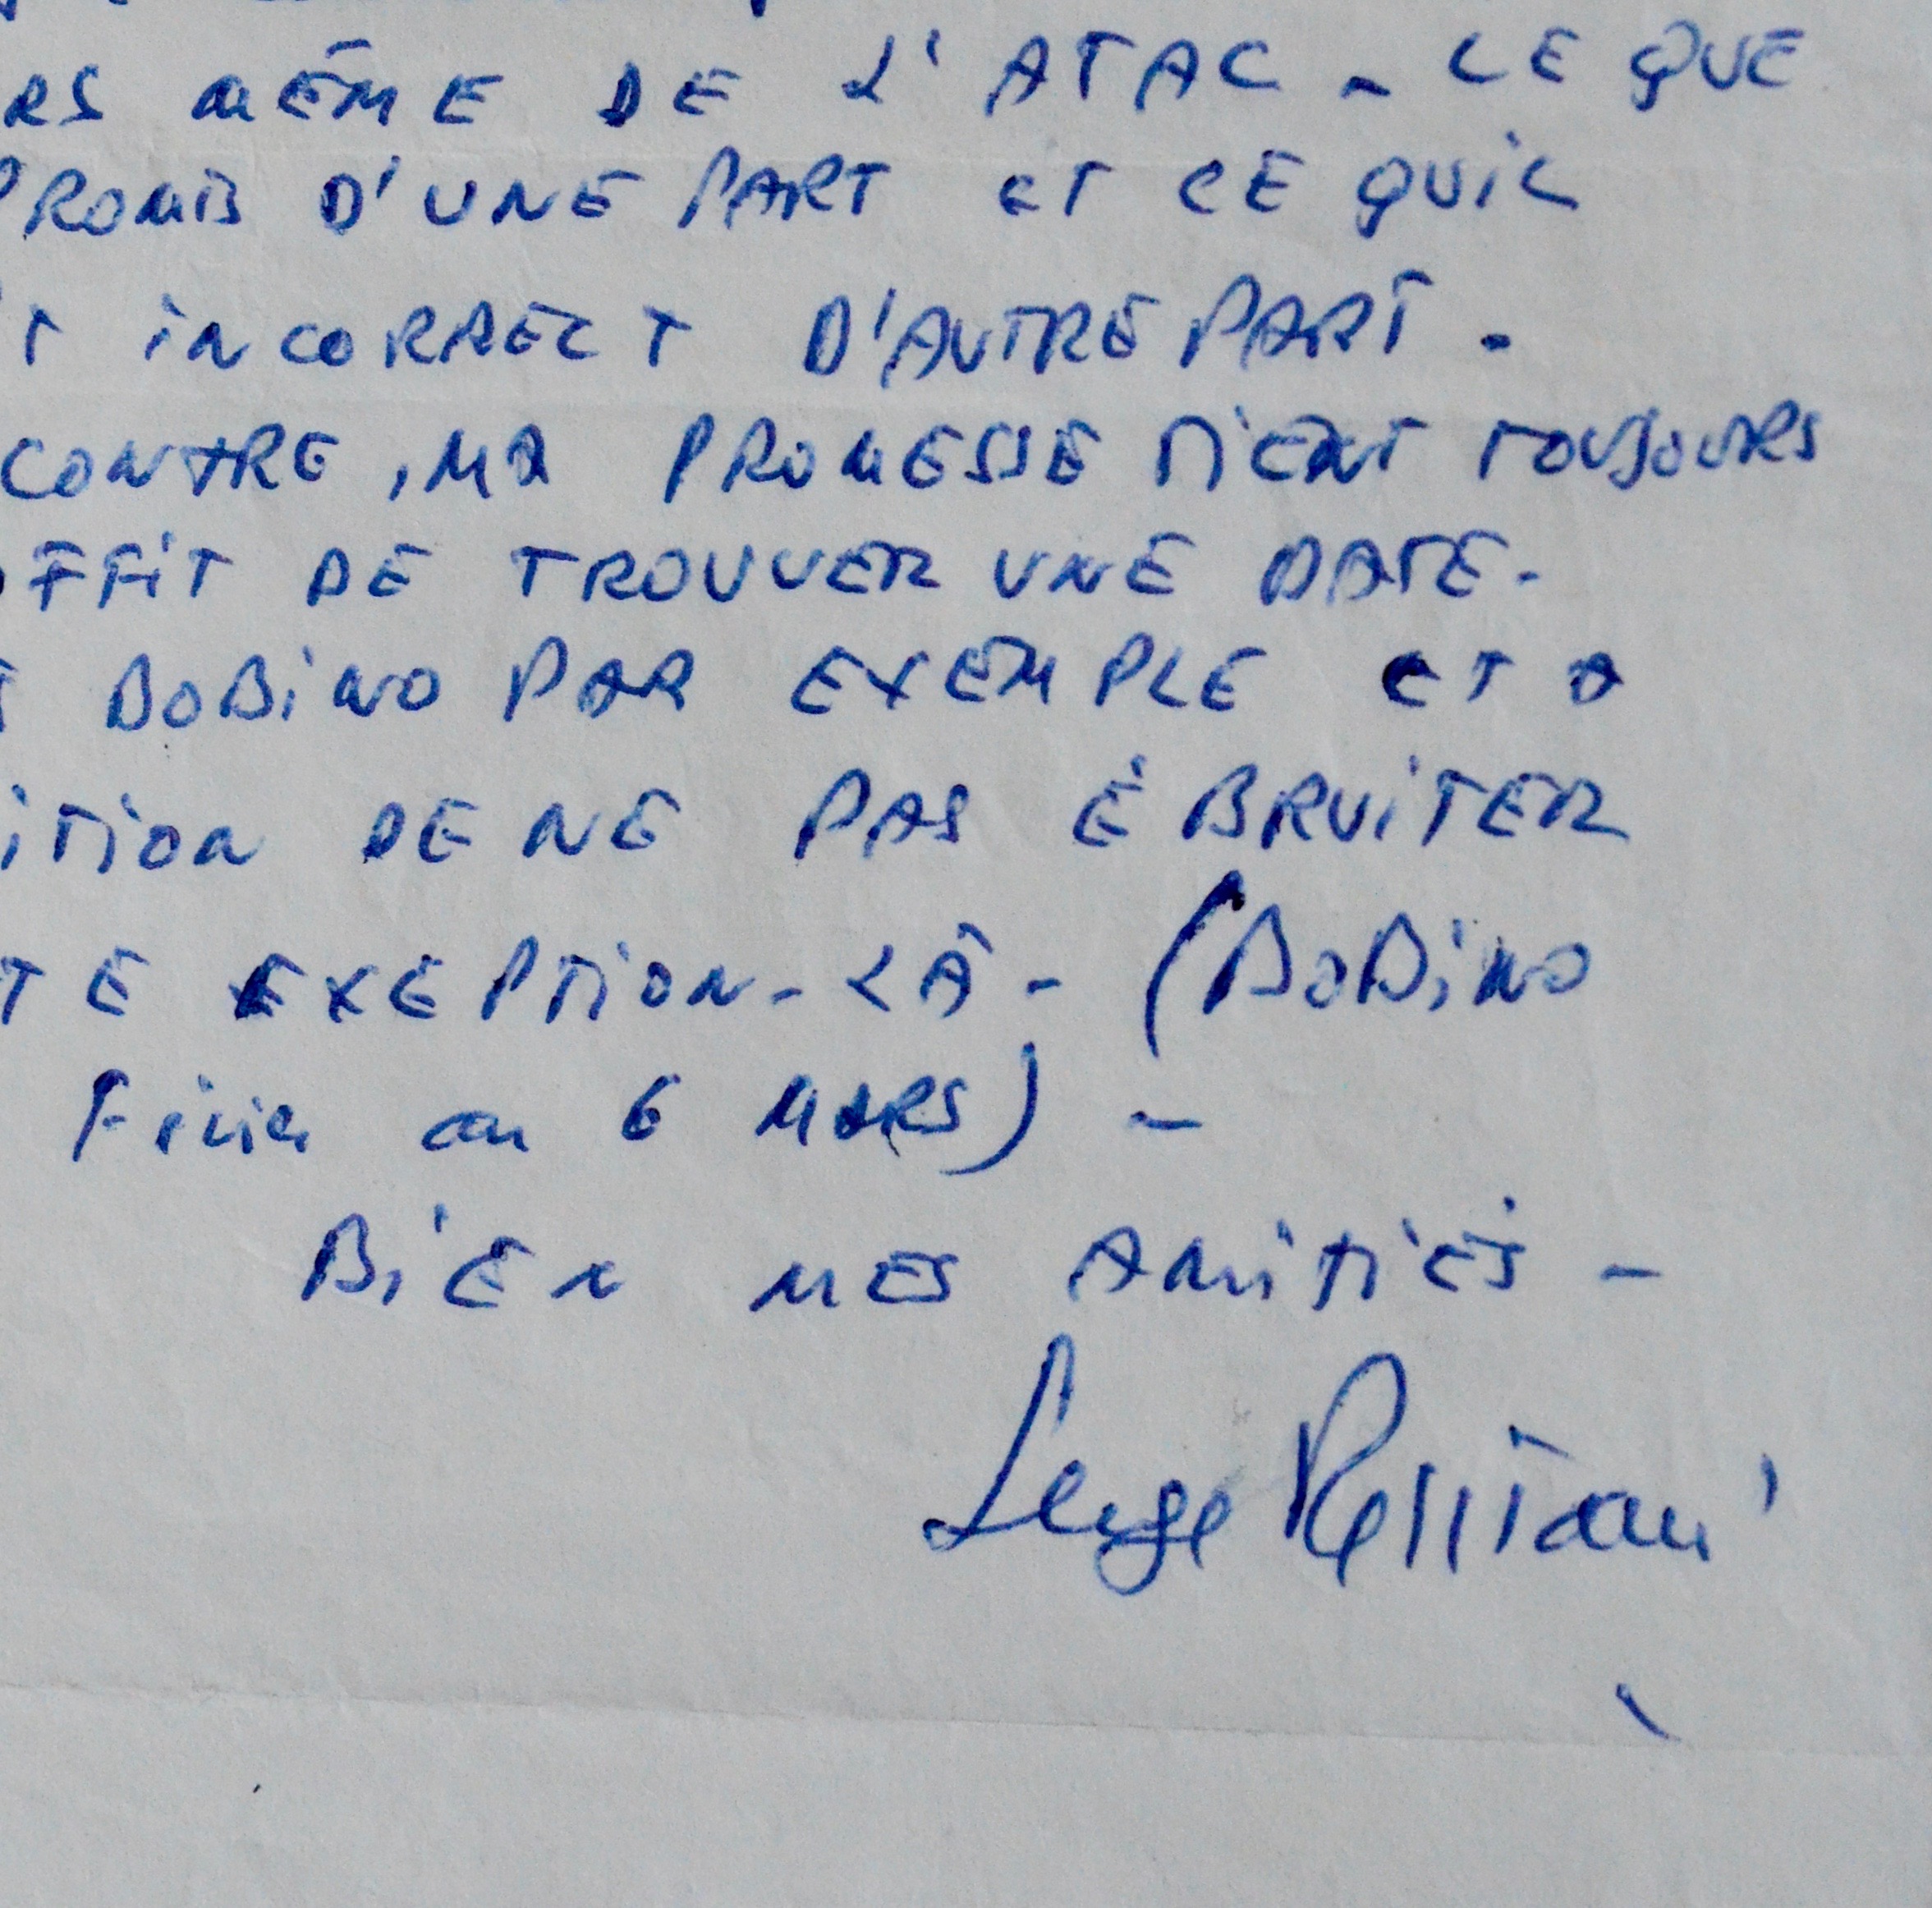 RS MÊME DE L'ATAC - CE QUE
PROMIS D'UNE PART ET CE QUIL
T INCORRECT D'AUTRE PART.
CONTRE, MA PROMESSE TIENT TOUJOURS
FFIT DE TROUVER UNE DATE.
BOBINO PAR EXEMPLE ET A
ITION DE NE PAS ÉBRUITER
TE EXEPTION-LÀ - (BOBINO
FINIR AU 6 MARS) -
BIEN MES AMITIÉS -
Serge Reggiani